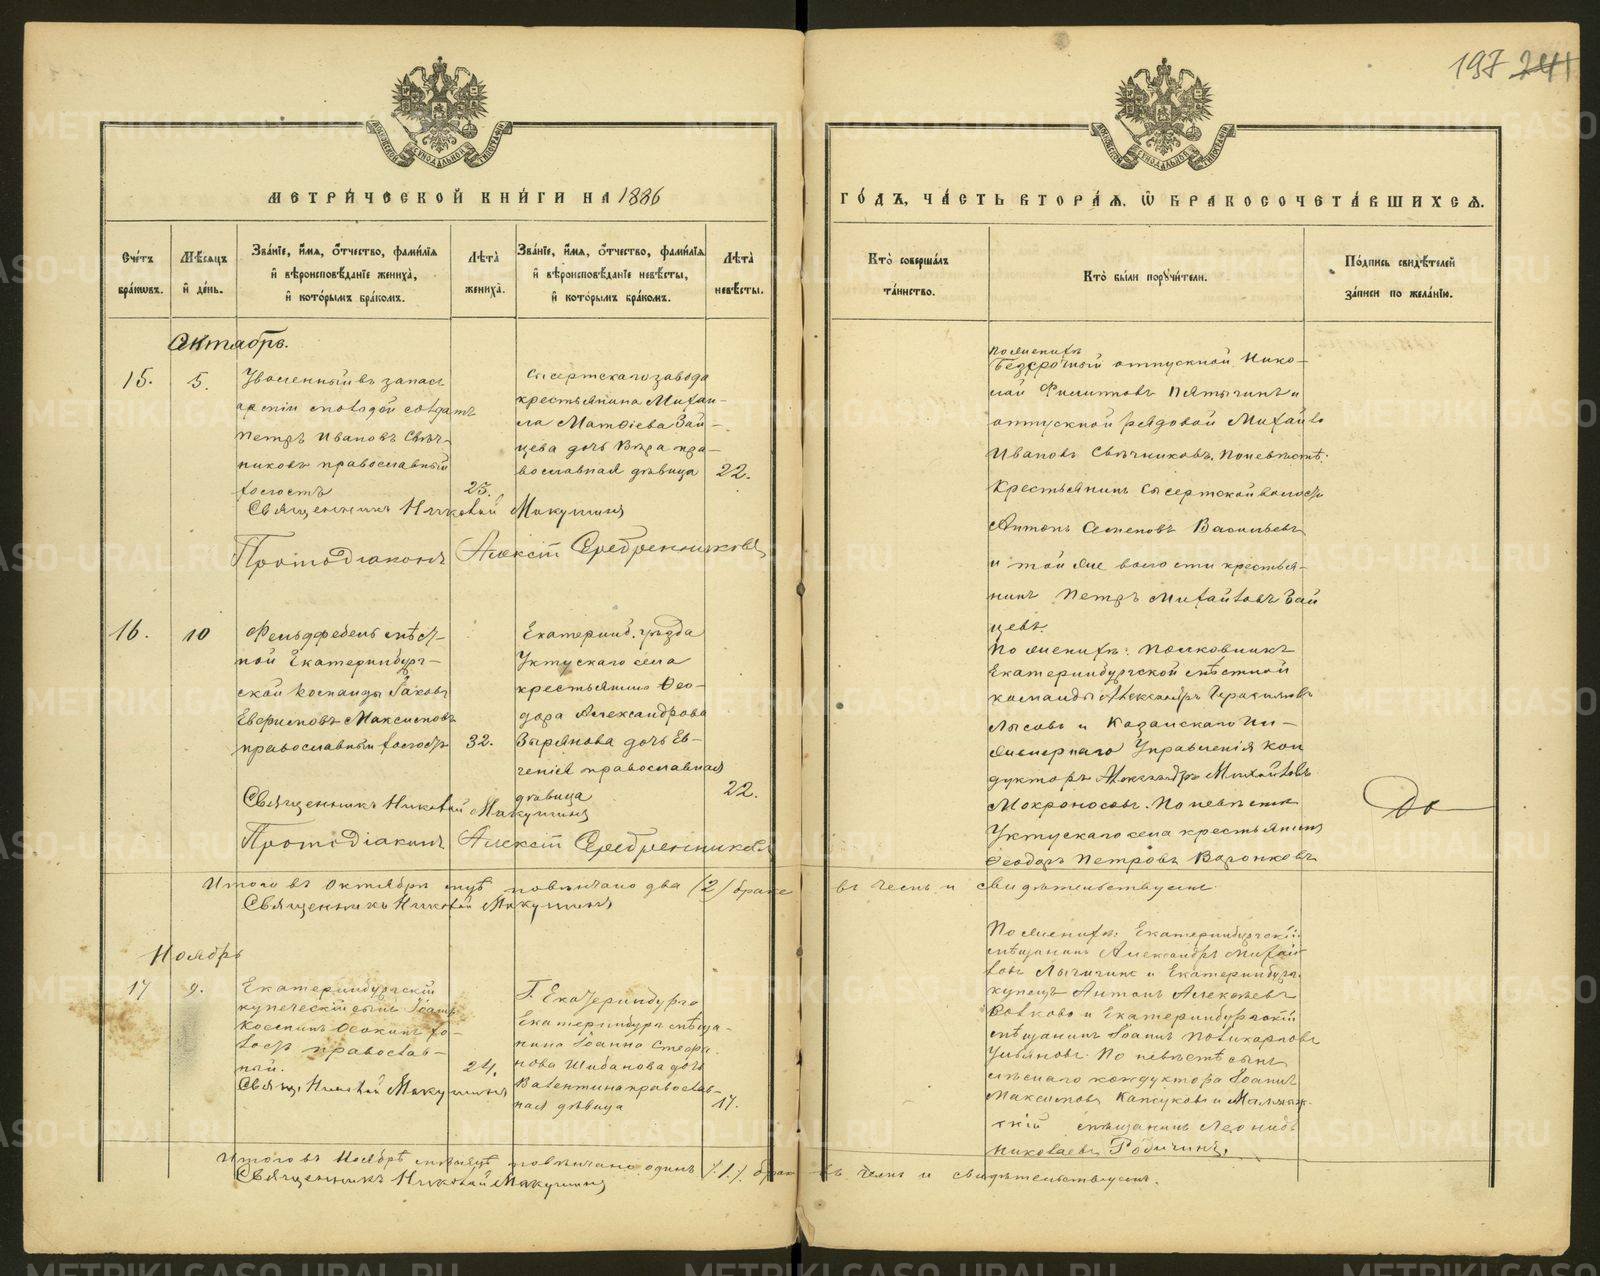 197 241
МЕТРИЧЕСКОЙ КНИГИ НА 1886
ГОДЪ, ЧАСТЬ ВТОРАЯ, Ѡ БРАКОСОЧЕТАВШИХСЯ.
Счетъ браковъ.
Мѣсяцъ и день.
Званіе, имя, отчество, фамилія и вѣроисповѣданіе жениха, и которымъ бракомъ.
Лѣта жениха.
Званіе, имя, отчество, фамилія и вѣроисповѣданіе невѣсты, и которымъ бракомъ.
Лѣта невѣсты.
Кто совершалъ таинство.
Кто были поручители.
Подпись свидѣтелей записи по желанію.
Октябрь.
15.
5.
Уволенный въ запасъ
арміи молодой солдатъ
Петръ Ивановъ Свѣч-
никовъ православный
холостъ
23.
Сысертскаго завода
крестьянина Михаи-
ла Матѳіева Зай-
цева дочь Вѣра пра-
вославная дѣвица
22.
Священникъ Николай Макушинъ
Протодіаконъ Алексій Серебренниковъ
По женихѣ
Безсрочный отпускной Нико-
лай Филиповъ Пятычинъ и
отпускной рядовой Михаило
Ивановъ Свѣчниковъ. По невѣстѣ:
Крестьянинъ Сысертской волости
Антонъ Семеновъ Васильевъ
и той же волости крестья-
нинъ Петръ Михайловъ Зай
цевъ.
16.
10
Фельдфебель мѣст-
ной Екатеринбург-
ской команды Іаковъ
Евфимовъ Максимовъ
православный холостъ
32.
Екатеринб. уѣзда
Уктускаго села
крестьянина Ѳео-
дора Александрова
Зырянова дочь Ев-
генія православная
дѣвица
22.
Священникъ Николай Макушинъ
Протодіаконъ Алексій Серебренниковъ
По женихѣ: полковникъ
Екатеринбургской мѣстной
команды Александръ Герасимовъ
Лысовъ и Казанскаго Ин-
женернаго Управленія кон
дукторъ Александръ Михайловъ
Мокроносовъ. По невѣстѣ
Уктускаго села крестьянинъ
Ѳеодоръ Петровъ Воронковъ
Итого въ Октябрѣ мцѣ повѣнчано два (2) брака
въ чемъ и свидѣтельствуемъ.
Священникъ Николай Макушинъ
Ноябрь
17
9.
Екатеринбургскій
купеческій сынъ Іоаннъ
Косминъ Осокинъ хо-
лостъ православ-
ный.
24.
Г. Екатеринбурга
Екатеринбург. мѣща-
нина Іоанна Стефа-
нова Шибанова дочь
Валентина православ-
ная дѣвица
17.
Свящ. Николай Макушинъ
По женихѣ: Екатеринбургскій
мѣщанинъ Александръ Михай
ловъ Лычинъ и Екатеринбург.
купецъ Антонъ Алексѣевъ
Волковъ и Екатеринбургскій
мѣщанинъ Іоаннъ Поликарповъ
Ульяновъ. По невѣстѣ сынъ
кондуктора Іоаннъ
Максимовъ и
мѣщанинъ Леонидъ
Николаевъ Родигинъ.
Итого въ Ноябрѣ мѣсяцѣ повѣнчано одинъ /.1./ бракъ
въ чемъ и свидѣтельствуемъ.
Священникъ Николай Макушинъ
METRIKI.GASO-URAL.RU